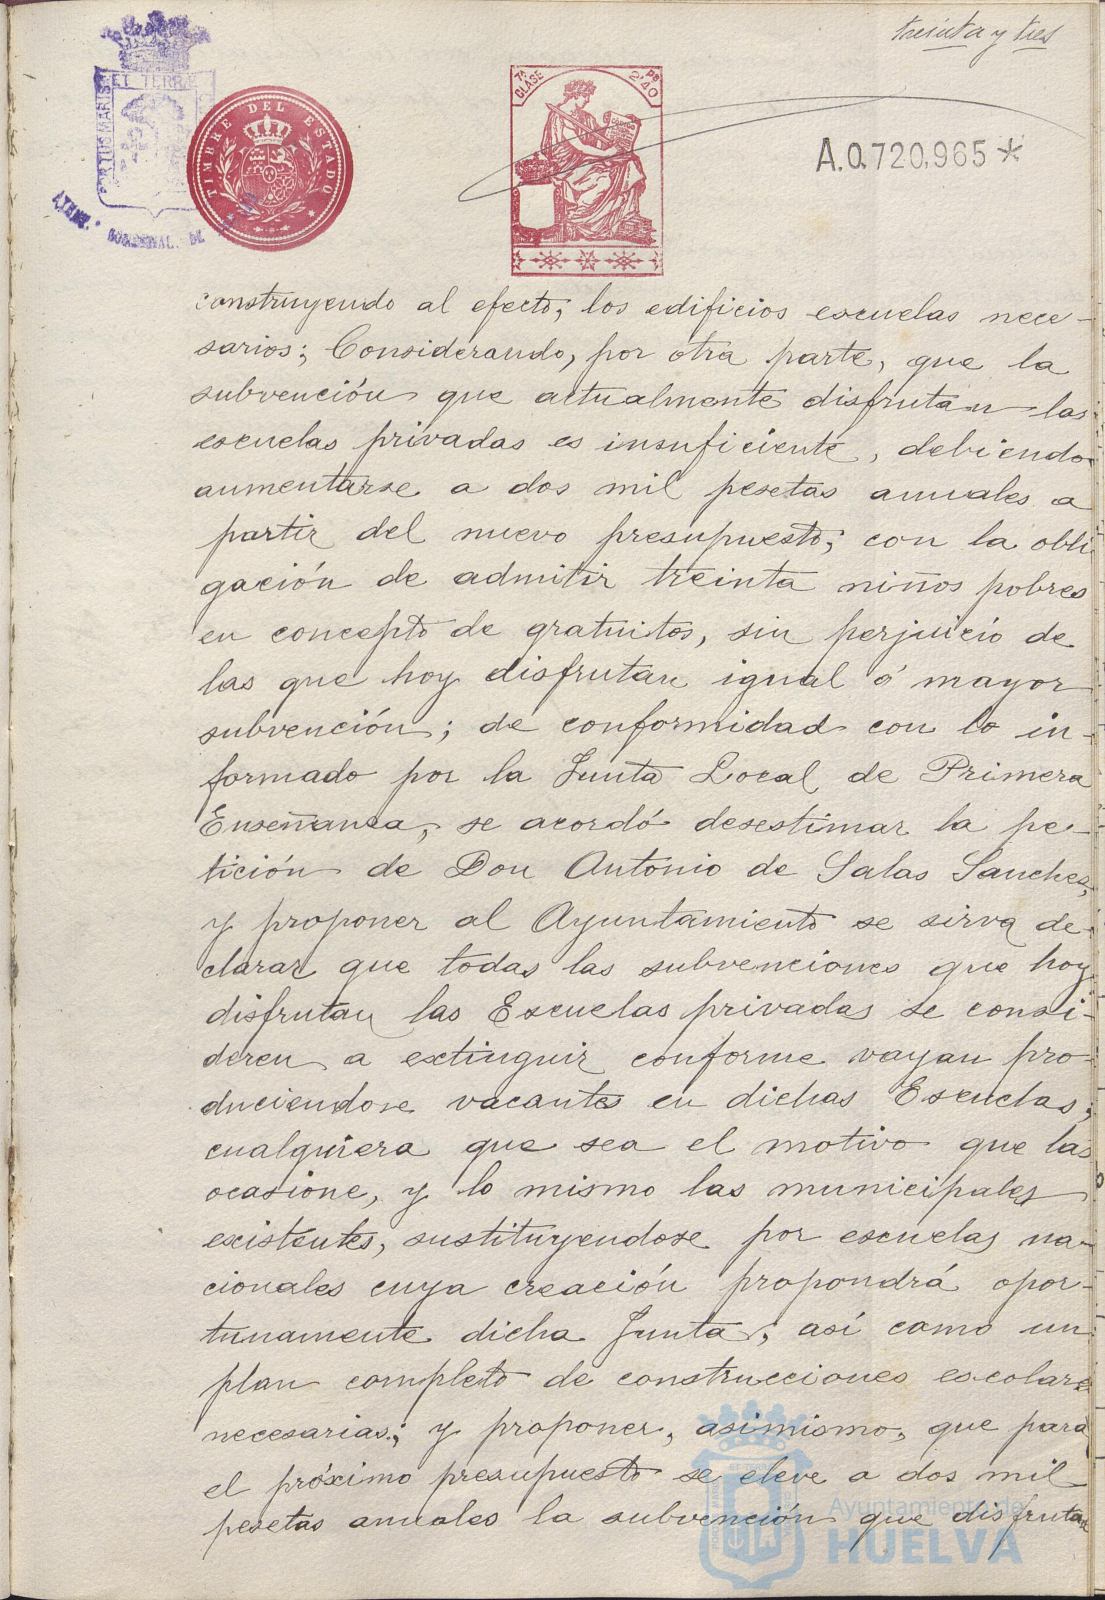 treinta y tres
PORTUS MARIS ET TERRÆ
TIMBRE DEL ESTADO
7ª CLASE
2'40 Ps
A.0.720,965*
construyendo al efecto, los edificios escuelas nece-
sarios; Considerando, por otra parte, que la
subvención que actualmente disfrutan las
escuelas privadas es insuficiente, debiendo
aumentarse a dos mil pesetas anuales a
partir del nuevo presupuesto; con la obli
gación de admitir treinta niños pobres
en concepto de gratuitos, sin perjuicio de
las que hoy disfrutan igual ó mayor
subvención; de conformidad con lo in-
formado por la Junta Local de Primera
Enseñanza, se acordó desestimar la pe-
tición de Don Antonio de Salas Sanchez,
y proponer al Ayuntamiento se sirva de-
clarar que todas las subvenciones que hoy
disfrutan las Escuelas privadas se consi-
deren a extinguir conforme vayan pro-
duciendose vacantes en dichas Escuelas,
cualquiera que sea el motivo que las
ocasione, y lo mismo las municipales
existentes, sustituyendose por escuelas na-
cionales cuya creación propondrá opor-
tunamente dicha Junta, así como un
plan completo de construcciones escolares
necesarias; y proponer, asimismo, que para
el próximo presupuesto se eleve a dos mil
pesetas anuales la subvención que disfrutan
Ayuntamiento de
HUELVA